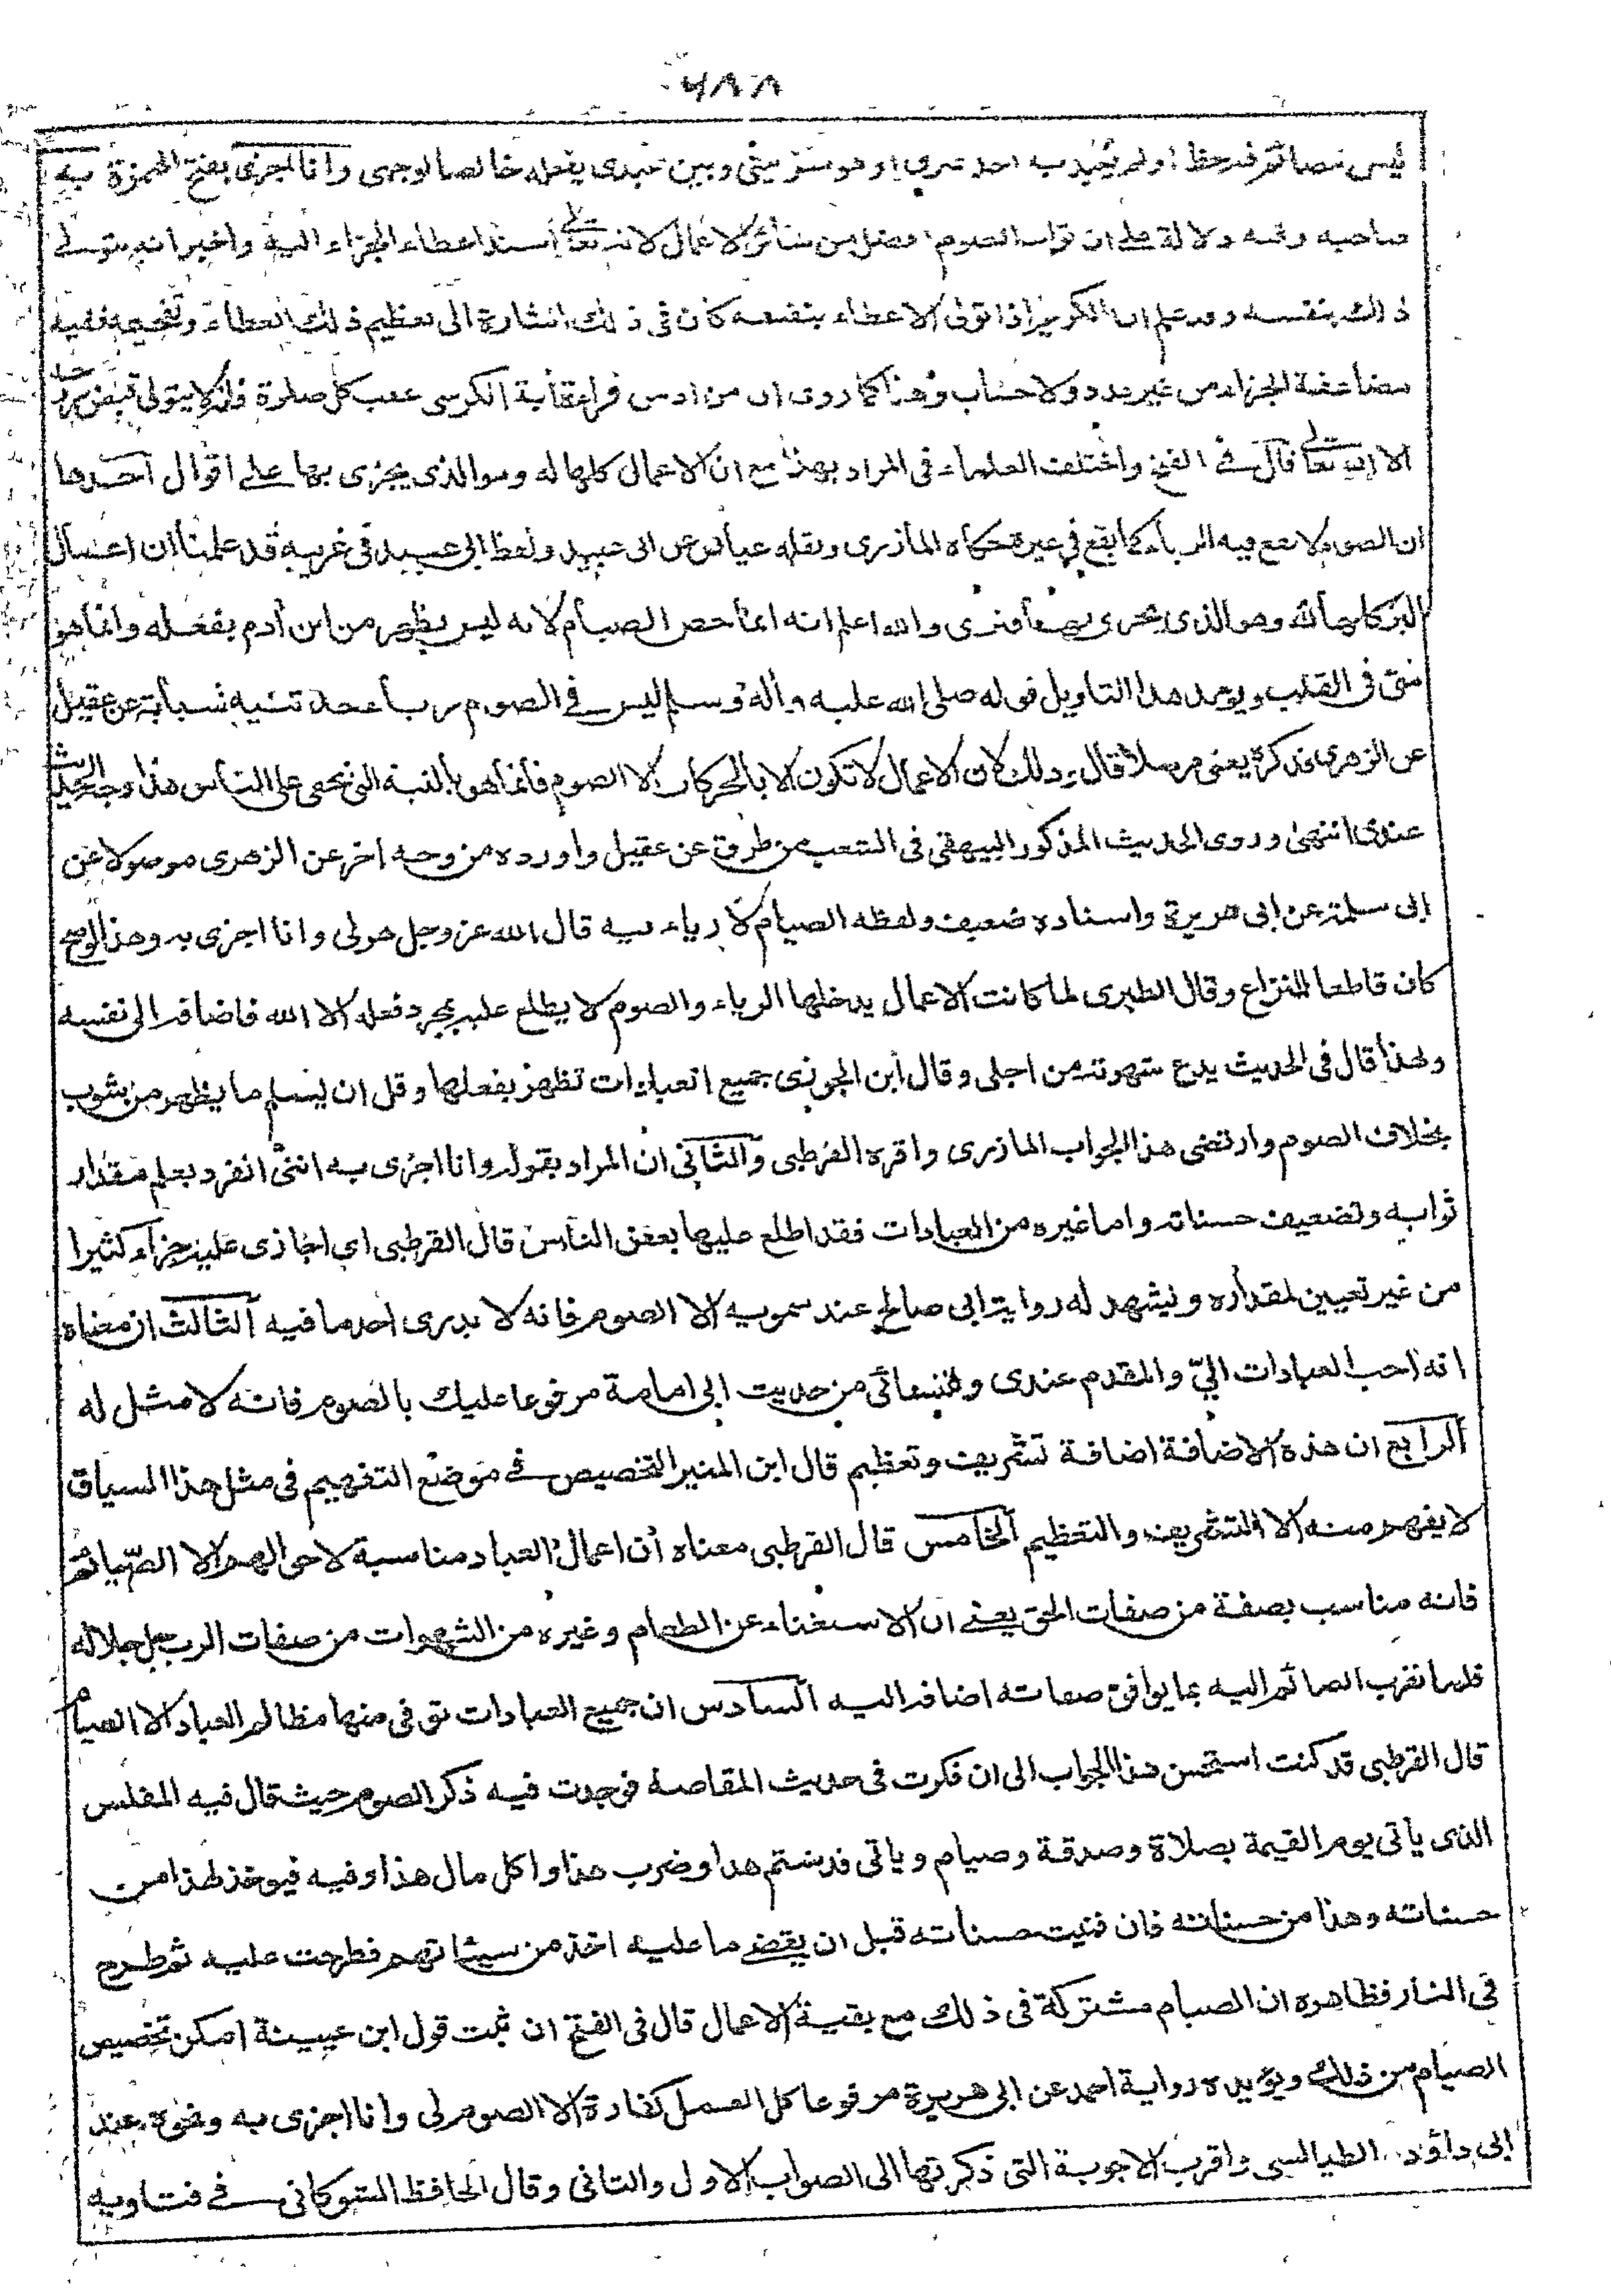 ٤٨٨
ليس لصائم فيه حظ او لم يتعبد به احد غيرى او هو سر بينى وبين عبدى يفعله خالصا لوجهى وانا اجزى بفتح الهمزة به
صاحبه وفيه دلالة على ان ثواب الصوم افضل من سائر الاعمال لانه تعالى اسند اعطاء الجزاء اليه واخبر انه يتولى
ذلك بنفسه وقد علم ان الكريم اذا تولى الاعطاء بنفسه كان فى ذلك اشارة الى تعظيم ذلك العطاء وتفخيمه ففيه
مضاعفة الجزاء من غير عدد ولا حساب وهذا كما روى ان من ادمن قراءة أية الكرسى عقب كل صلوة فانه لا يتولى قبض روحه
الا الله تعالى قال فى الفتح واختلف العلماء فى المراد بهذا مع ان الاعمال كلها له وهو الذى يجزى بها على اقوال احدها
ان الصوم لا يقع فيه الرياء كما يقع فى غيره حكاه المازرى ونقله عياض عن ابى عبيد ولفظ ابى عبيد فى غريبه قد علمنا ان اعمال
البر كلها لله وهو الذى يجزى بها فنرى والله اعلم انه انما خص الصيام لانه ليس يظهر من ابن أدم بفعله وانما هو
شئ فى القلب ويؤيد هذا التاويل قوله صلى الله عليه وأله وسلم ليس فى الصوم رياء حدثنيه شبابة عن عقيل
عن الزهرى فذكره يعنى مرسلا قال وذلك لان الاعمال لا تكون الا بالحركات الا الصوم فانما هو بالنية التى تخفى على الناس هذا وجه الحديث
عندى انتهى وروى الحديث المذكور البيهقى فى الشعب من طرق عن عقيل واورده من وجه اخر عن الزهرى موصولا عن
ابى سلمة عن ابى هريرة واسناده ضعيف ولفظه الصيام لا رياء فيه قال الله عز وجل هو لى وانا اجزى به وهذا لو صح
كان قاطعا للنزاع وقال الطبرى لما كانت الاعمال يدخلها الرياء والصوم لا يطلع عليه بمجرد فعله الا الله فاضافه الى نفسه
ولهذا قال فى الحديث يدع شهوته من اجلى وقال ابن الجوزى جميع العبادات تظهر بفعلها وقل ان يسلم ما يظهر من شوب
بخلاف الصوم وارتضى هذا الجواب المازرى واقره القرطبى والثانى ان المراد بقوله وانا اجزى به اننى انفرد بعلم مقدار
ثوابه وتضعيف حسناته واما غيره من العبادات فقد اطلع عليها بعض الناس قال القرطبى اى اجازى عليه جزاء كثيرا
من غير تعيين لمقداره ويشهد له رواية ابى صالح عند سمويه الا الصوم فانه لا يدرى احد ما فيه الثالث ان معناه
انه احب العبادات الىّ والمقدم عندى وللنسائى من حديث ابى امامة مرفوعا عليك بالصوم فانه لا مثل له
الرابع ان هذه الاضافة اضافة تشريف وتعظيم قال ابن المنير التخصيص فى موضع التفهيم فى مثل هذا السياق
لا يفهم منه الا التشريف والتعظيم الخامس قال القرطبى معناه ان اعمال العباد مناسبة لاحوالهم الا الصيام
فانه مناسب بصفة من صفات الحق يعنى ان الاستغناء عن الطعام وغيره من الشهوات من صفات الرب جل جلاله
فلما تقرب الصائم اليه بما يوافق صفاته اضافه اليه السادس ان جميع العبادات توفى منها مظالم العباد الا الصيام
قال القرطبى قد كنت استحسن هذا الجواب الى ان فكرت فى حديث المقاصة فوجدت فيه ذكر الصوم حيث قال فيه المفلس
الذى ياتى يوم القيمة بصلاة وصدقة وصيام وياتى قد شتم هذا وضرب هذا واكل مال هذا وفيه فيوخذ لهذا من
حسناته وهذا من حسناته فان فنيت حسناته قبل ان يقضى ما عليه اخذ من سيئاتهم فطرحت عليه ثم طرح
فى النار فظاهره ان الصيام مشتركة فى ذلك مع بقية الاعمال قال فى الفتح ان ثبت قول ابن عيينة امكن تخصيص
الصيام من ذلك ويؤيده رواية احمد عن ابى هريرة مرفوعا كل العمل كفارة الا الصوم لى وانا اجزى به ونحوه عند
ابى داؤد الطيالسى واقرب الاجوبة التى ذكرتها الى الصواب الاول والثانى وقال الحافظ الشوكانى فى فتاويه